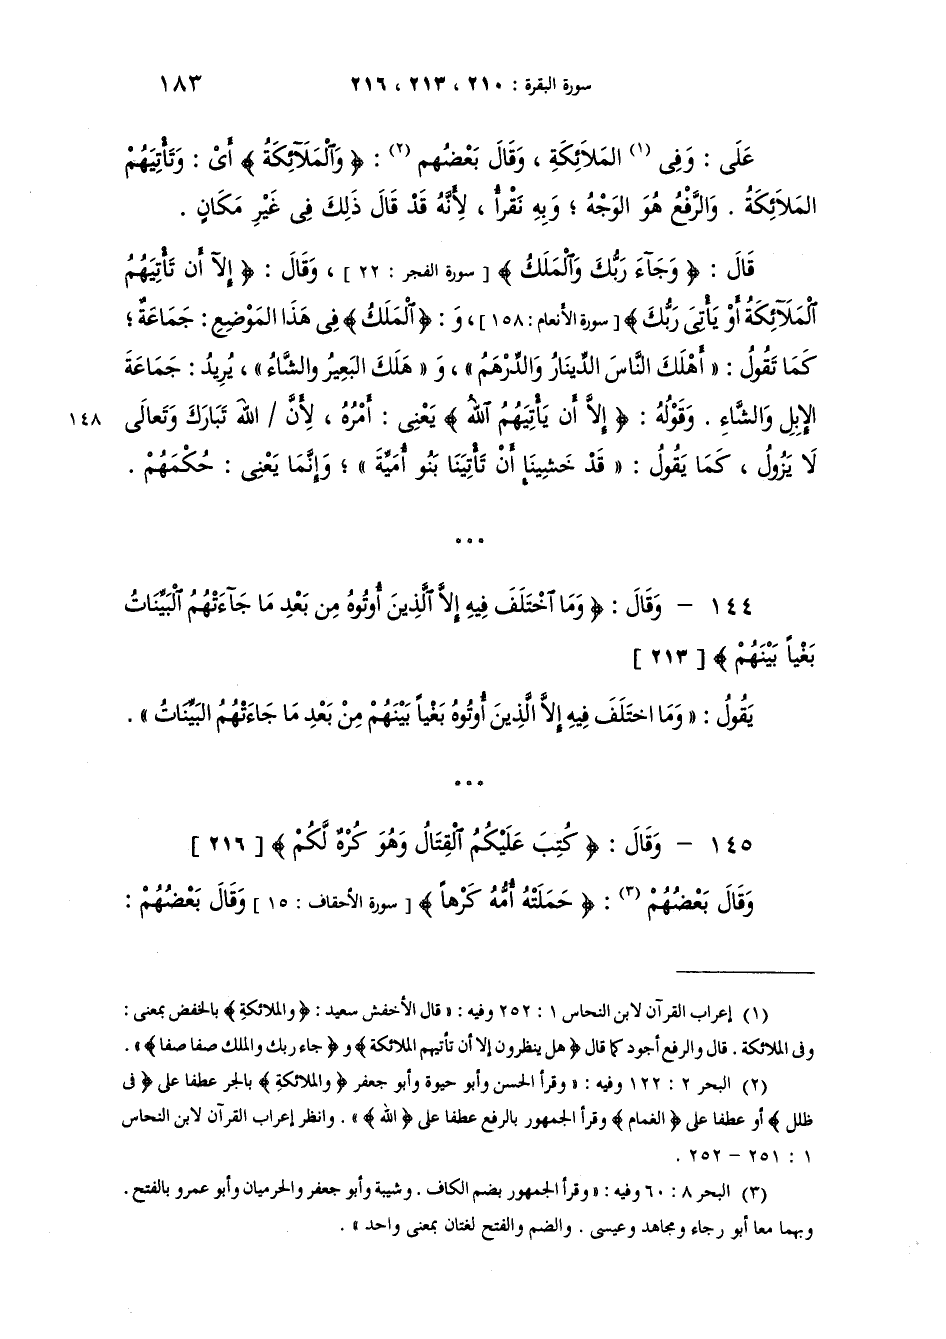 سورة البقرة : ٢١٠ ، ٢١٣ ، ٢١٦ ١٨٣
عَلَى : وَفِى (١) المَلاَئِكَةِ ، وَقَالَ بَعْضُهم (٢) : ﴿ وَٱلْمَلَآئِكَةُ ﴾ أَىْ : وَتَأْتِيَهُمْ
المَلاَئِكَةُ . وَالرَّفْعُ هُوَ الوَجْهُ ؛ وَبِهِ نَقْرأُ ، لِأَنَّهُ قَدْ قَالَ ذَلِكَ فِى غَيْرِ مَكَانٍ .
قَالَ : ﴿ وَجَآءَ رَبُّكَ وَٱلْمَلَكُ ﴾ [ سورة الفجر : ٢٢ ] ، وَقَالَ : ﴿ إِلآ أَن تَأْتِيَهُمُ
ٱلْمَلَآئِكَةُ أَوْ يَأْتِىَ رَبُّكَ ﴾ [ سورة الأنعام : ١٥٨ ] ، وَ : ﴿ ٱلْمَلَكُ ﴾ فِى هَذَا المَوْضِعِ : جَمَاعَةٌ ؛
كَمَا تَقُولُ : « أَهْلَكَ النَّاسَ الدِّينَارُ وَالدِّرْهَمُ » ، وَ « هَلَكَ البَعِيرُ والشَّاءُ » ، يُرِيدُ : جَمَاعَةَ
الإِبِلِ وَالشَّاءِ . وَقَوْلُهُ : ﴿ إِلاَّ أَن يَأْتِيَهُمُ ٱللهُ ﴾ يَعْنِى : أَمْرُهُ ، لِأَنَّ / اللهَ تَبَارَكَ وَتَعَالَى ١٤٨
لَا يَزُولُ ، كَمَا يَقُولُ : « قَدْ خَشِينَا أَنْ تَأْتِيَنَا بَنُو أُمَيَّةَ » ؛ وَإِنَّمَا يَعْنِى : حُكْمَهُمْ .
• • •
١٤٤ – وَقَالَ : ﴿ وَمَا ٱخْتَلَفَ فِيهِ إِلاَّ ٱلَّذِينَ أُوتُوهُ مِن بَعْدِ مَا جَآءَتْهُمُ ٱلْبَيِّنَاتُ
بَغْياً بَيْنَهُمْ ﴾ [ ٢١٣ ]
يَقُولُ : « وَمَا اختَلَفَ فِيهِ إِلاَّ الَّذِينَ أُوتُوهُ بَغْياً بَيْنَهُمْ مِنْ بَعْدِ مَا جَاءَتْهُمُ البَيِّنَاتُ » .
• • •
١٤٥ – وَقَالَ : ﴿ كُتِبَ عَلَيْكُمُ ٱلْقِتَالُ وَهُوَ كُرْهٌ لَّكُمْ ﴾ [ ٢١٦ ]
وَقَالَ بَعْضُهُمْ (٣) : ﴿ حَمَلَتْهُ أُمُّهُ كَرْهاً ﴾ [ سورة الأحقاف : ١٥ ] وَقَالَ بَعْضُهُمْ :
(١) إعراب القرآن لابن النحاس ١ : ٢٥٢ وفيه : « قال الأخفش سعيد : ﴿ والملائكةِ ﴾ بالخفض بمعنى :
وفى الملائكة . قال والرفع أجود كما قال ﴿ هل ينظرون إلا أن تأتيهم الملائكة ﴾ و ﴿ جاء ربك والملك صفا صفا ﴾ » .
(٢) البحر ٢ : ١٢٢ وفيه : « وقرأ الحسن وأبو حيوة وأبو جعفر ﴿ والملائكةِ ﴾ بالجر عطفا على ﴿ فى
ظلل ﴾ أو عطفا على ﴿ الغمام ﴾ وقرأ الجمهور بالرفع عطفا على ﴿ الله ﴾ » . وانظر إعراب القرآن لابن النحاس
١ : ٢٥١ – ٢٥٢ .
(٣) البحر ٨ : ٦٠ وفيه : « وقرأ الجمهور بضم الكاف . وشيبة وأبو جعفر والحرميان وأبو عمرو بالفتح .
وبهما معا أبو رجاء ومجاهد وعيسى . والضم والفتح لغتان بمعنى واحد » .